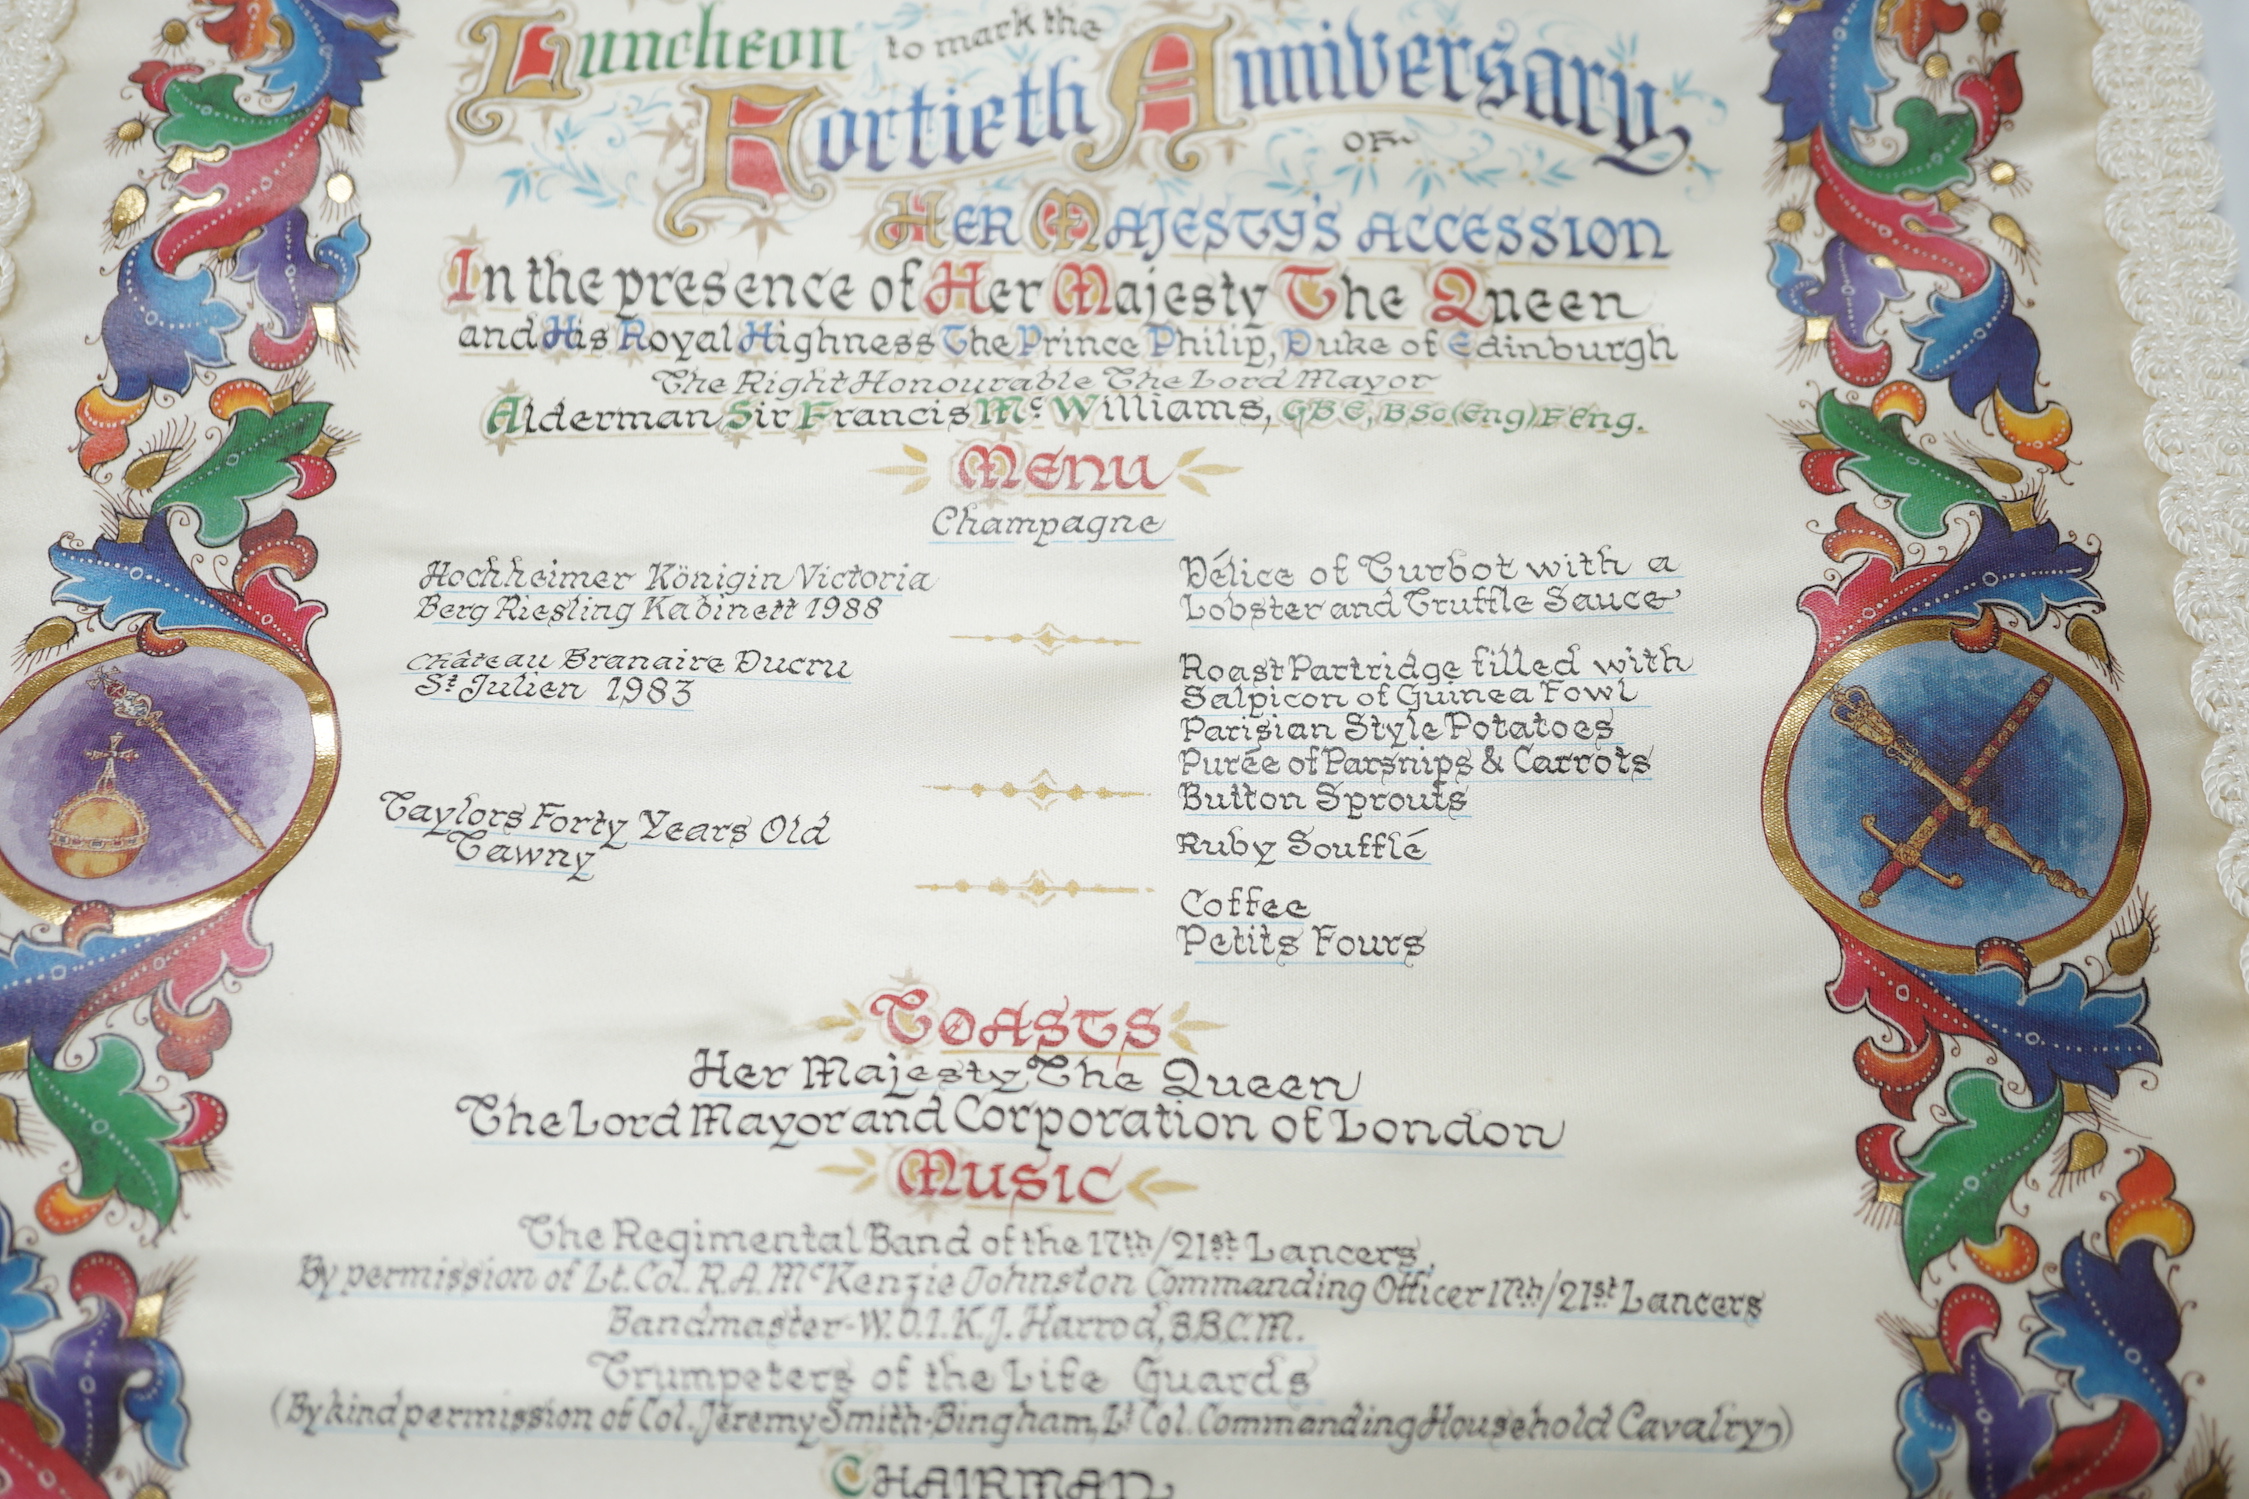 Luncheon to mark the
Fortieth Anniversary
OF
HER MAJESTY'S ACCESSION
In the presence of Her Majesty The Queen
and His Royal Highness The Prince Philip, Duke of Edinburgh
The Right Honourable The Lord Mayor
Alderman Sir Francis McWilliams, GBE, BSc(Eng) FEng.
MENU
Champagne
Hochheimer Königin Victoria
Berg Riesling Kabinett 1988
Délice of Turbot with a
Lobster and Truffle Sauce
Château Branaire Ducru
St Julien 1983
Roast Partridge filled with
Salpicon of Guinea Fowl
Parisian Style Potatoes
Purée of Parsnips & Carrots
Button Sprouts
Taylors Forty Years Old
Tawny
Ruby Soufflé
Coffee
Petits Fours
TOASTS
Her Majesty The Queen
The Lord Mayor and Corporation of London
MUSIC
The Regimental Band of the 17th/21st Lancers,
By permission of Lt. Col. R.A. McKenzie Johnston Commanding Officer 17th/21st Lancers
Bandmaster-W.O.1. K.J. Harrod, B.B.C.M.
Trumpeters of the Life Guards
(By kind permission of Col. Jeremy Smith-Bingham, Lt Col. Commanding Household Cavalry)
CHAIRMAN